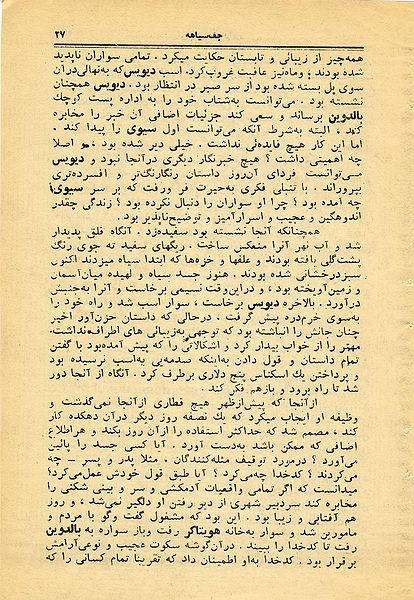 جف‌سیاهه ۲۷
همه‌چیز از زیبائی و تابستان حکایت میکرد . تمامی سواران ناپدید
شده بودند ؛ وماه‌نیز عاقبت غروب‌کرد. اسب دیویس‌که به‌نهالی‌درآن
سوی پل بسته شده بود از سر صبر در انتظار بود . دیویس همچنان
نشسته بود . می‌توانست به‌شتاب خود را به اداره پست کوچك
بالدوین برساند و سعی کند جزئیات اضافی آن خبر را مخابره
کند ، البته به‌شرط آنکه می‌توانست اول سیوی را پیدا کند .
اما این کار هیچ فایده‌ئی نداشت . خیلی دیر شده بود، و اصلا
چه اهمیتی داشت ؟ هیچ خبرنگار دیگری درآنجا نبود و دیویس
می‌توانست فردای آن‌روز داستان رنگارنگ‌تر و افسرده‌تری
بپروراند . با تنبلی فکری به‌حیرت فر ورفت که بر سر سیوی
چه آمده بود ؟ چرا او سواران را دنبال نکرده بود ؟ زندگی چقدر
اندوهگین و عجیب و اسرارآمیز و توضیح‌ناپذیر بود .
همچنانکه آنجا نشسته بود سفیده‌زد . آنگاه فلق پدیدار
شد و آب نهر آنرا منعکس ساخت . ریگهای سفید ته جوی رنگ
پشت‌گلی یافته بودند و علفها و خزه‌ها که ابتدا سیاه میزدند اکنون
سبزدرخشانی شده بودند . هنوز جسد سیاه و لهیده میان‌آسمان
و زمین‌آویخته بود ، و دراین‌وقت نسیمی برخاست و آنرا به‌جنبش
درآورد . بالاخره دیویس برخاست ، سوار اسب شد و راه خود را
به‌سوی خرم‌دره پیش گرفت ، درحالی که داستان حزن‌آور اخیر
چنان جانش را انباشته بود که توجهی‌به‌زیبائی های اطراف‌نداشت.
مهتر را از خواب بیدار کرد و اشکالاتی را که پیش آمده‌بود با گفتن
تمام داستان و قول دادن به‌اینکه صدمه‌یی به‌اسب نرسیده بود
و پرداختن یك اسکناس پنج دلاری برطرف کرد . آنگاه از آنجا دور
شد تا راه برود و بازهم فکر کند .
از آنجا که پیش‌ازظهر هیچ قطاری ازآنجا نمی‌گذشت و
وظیفه او ایجاب میکرد که یك نصفه روز دیگر درآن دهکده کار
کند ، مصمم شد که حداکثر استفاده را ازآن روز بکند و هراطلاع
اضافی که ممکن باشد به‌دست آورد . آیا کسی جسد را پائین
می‌آورد ؟ درمورد توقیف مثله‌کنندگان ، مثلا پدر و پسر ـ چه
می‌کردند ؟ کدخدا چه‌می‌کرد ؟ آیا طبق قول خودش عمل‌می‌کرد؟
میدانست که اگر تمامی واقعیات آدمکشی و سر و بینی شکنی را
مخابره کند سردبیر شهری از دیر رفتن او دلگیر نمی‌شد ، و روز
هم آفتابی و زیبا بود . این بود که مشغول گفت وگو با مردم و
مامورین شد و سوار به‌خانه هویتاگر رفت وباز سواره به بالدوین
رفت تا کدخدا را ببیند . درآن‌گوشه سکوت عجیب و نوعی‌آرامش
برقرار بود . کدخدا به‌او اطمینان داد که تقریبا تمام کسانی را که